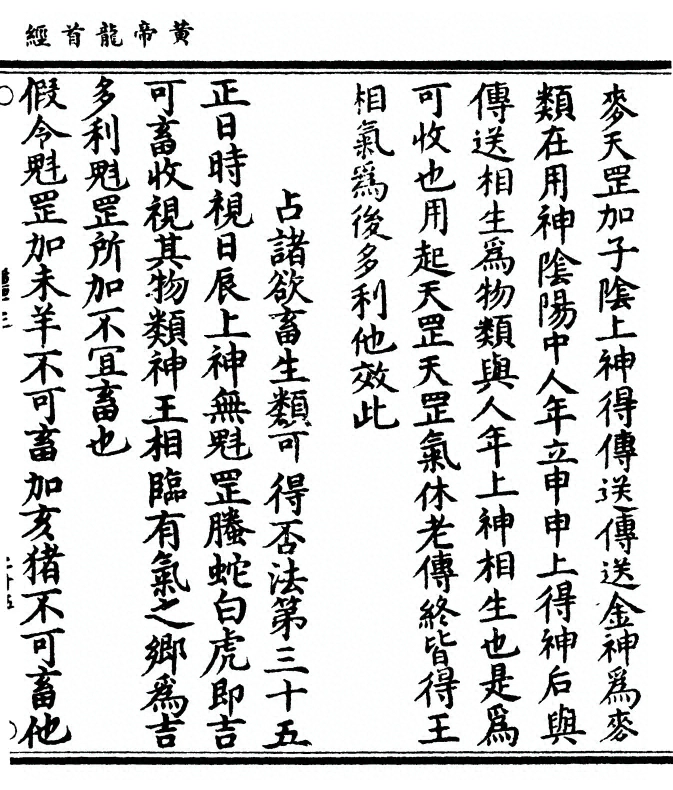 黃帝龍首經
麥天罡加子陰上神得傳送傳送金神爲麥
類在用神陰陽中人年立申申上得神后與
傳送相生爲物類與人年上神相生也是爲
可收也用起天罡天罡氣休老傳終皆得王
相氣爲後多利他效此
占諸欲畜生類可得否法第三十五
正日時視日辰上神無魁罡螣蛇白虎即吉
可畜收視其物類神王相臨有氣之鄉爲吉
多利魁罡所加不宜畜也
假令魁罡加未羊不可畜加亥猪不可畜他